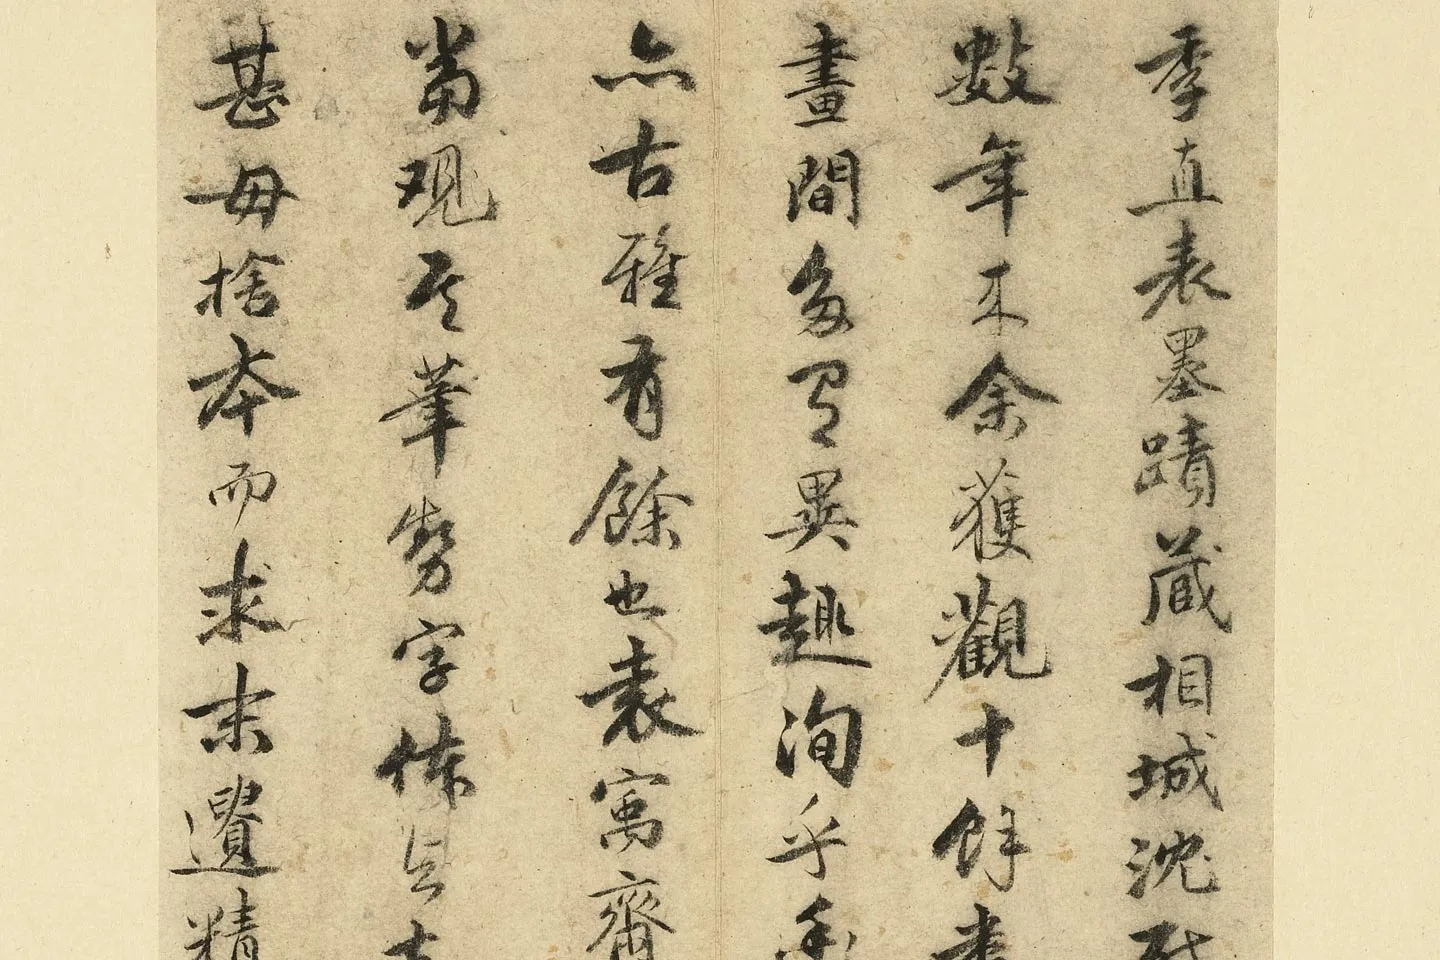 季直表墨蹟藏相城沈
數年來余獲觀十餘
畫間多有異趣洵乎
亦古雅有餘也袁寓齋
當觀其筆勢字體
甚毋捨本而求末遺精